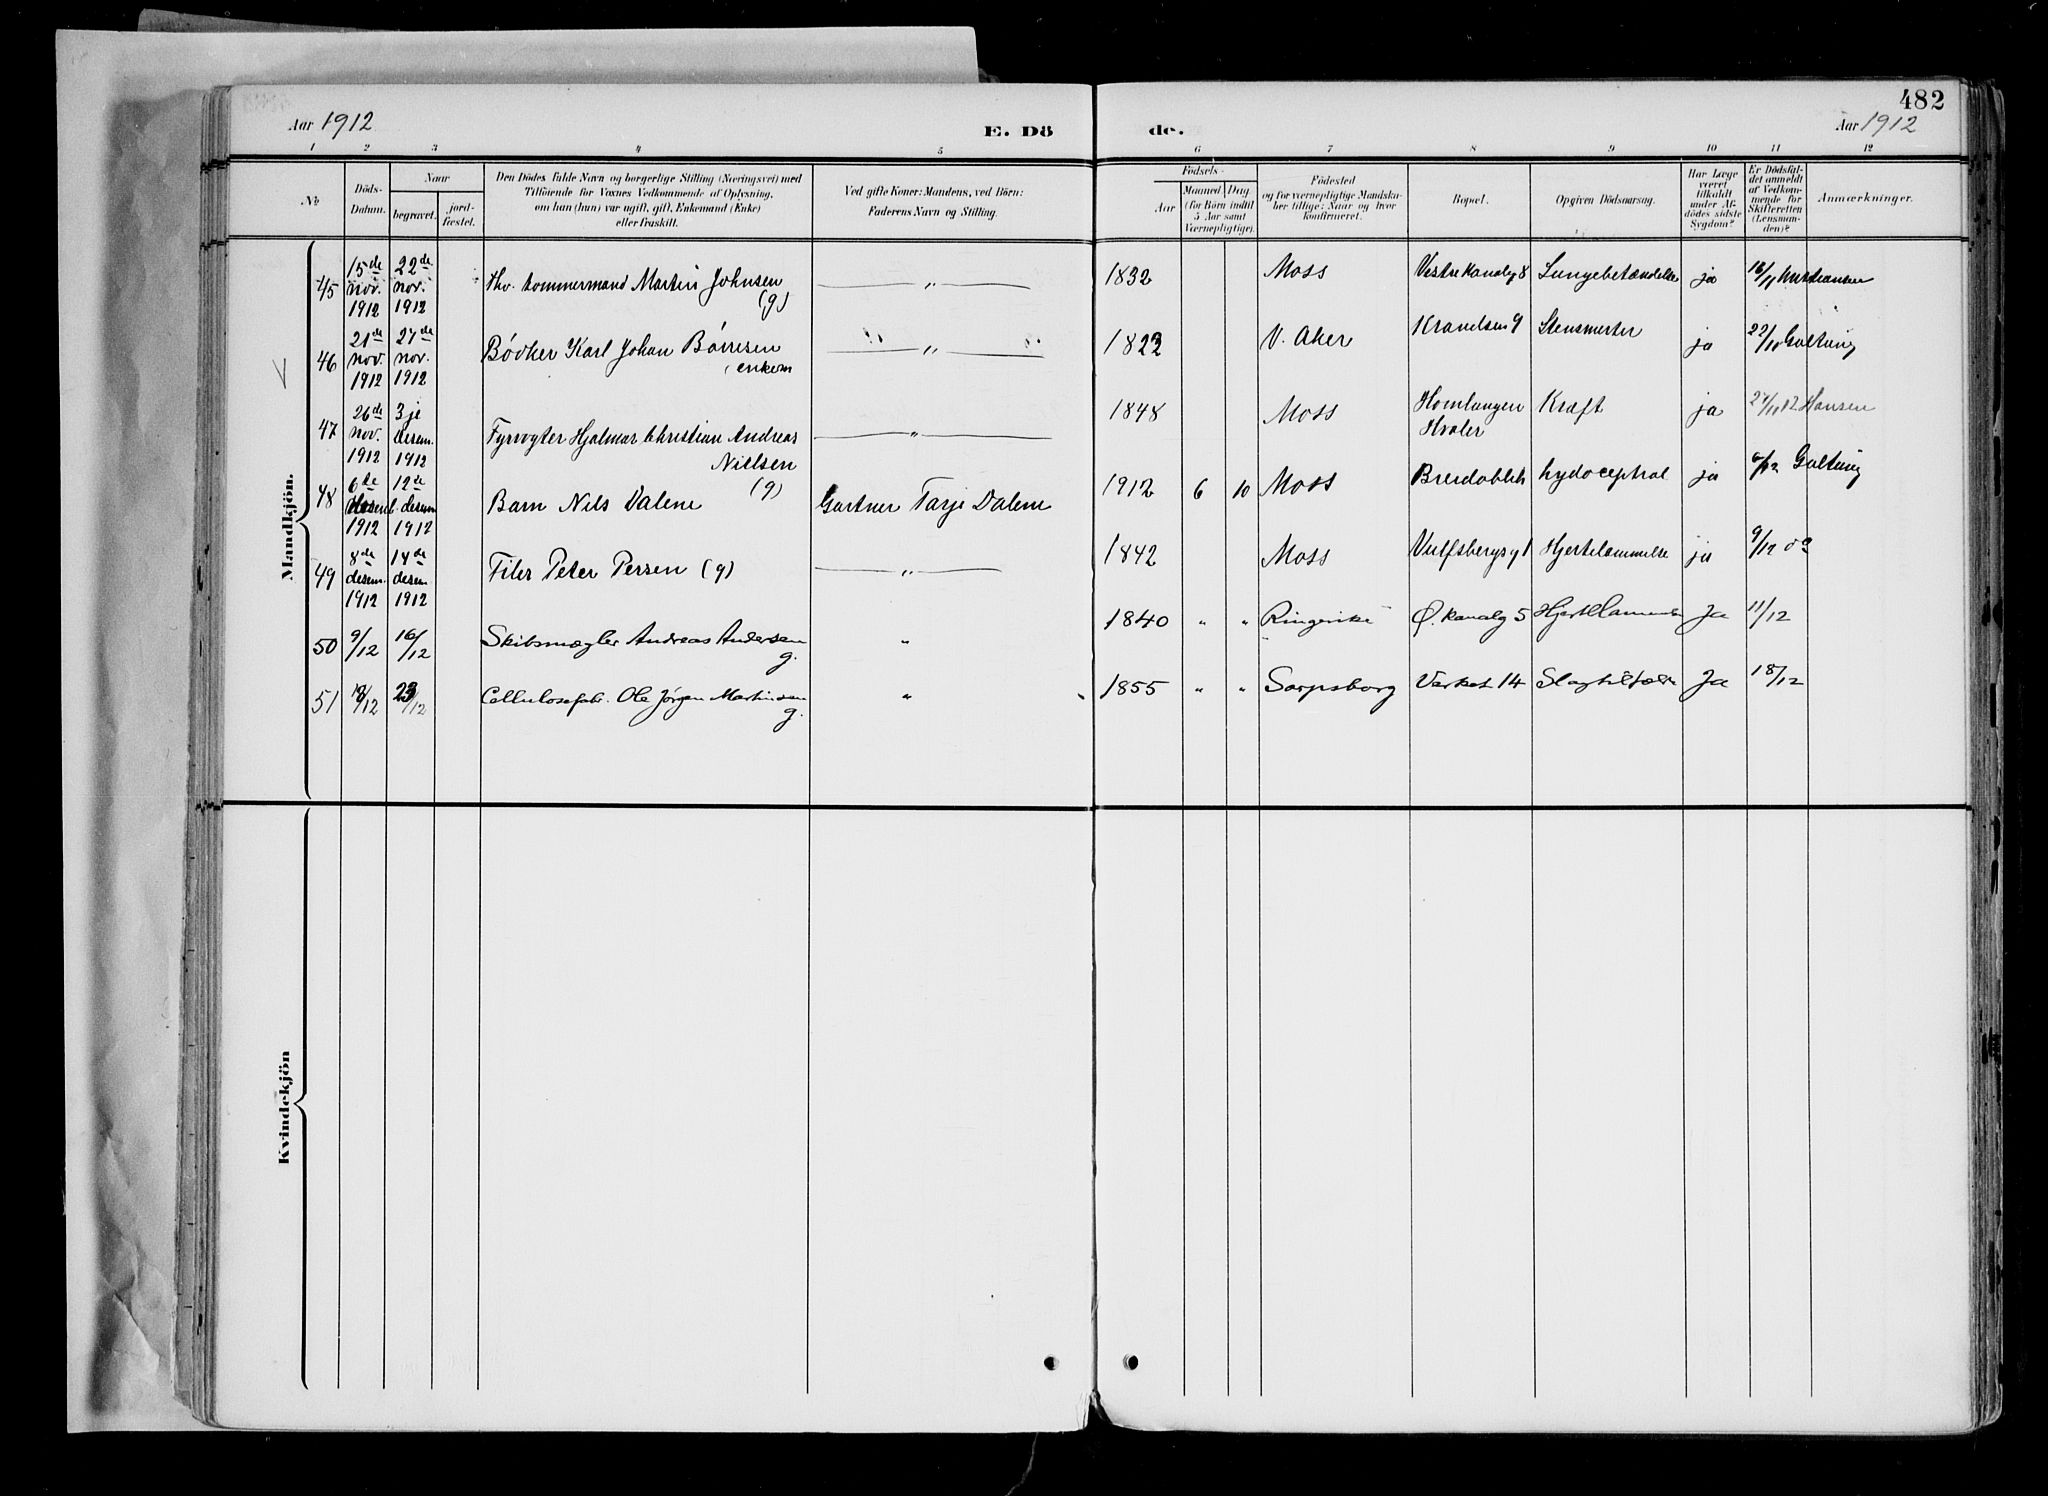 482
Aar 1912
E. Dö
de.
Aar 1912
1 2 3 4 5 6 7 8 9 10 11 12
No
Döds-Datum.
Naar
begravet.
jord-fæstet.
Den Dödes fulde Navn og borgerlige Stilling (Næringsvei) med
Tilföiende for Voxnes Vedkommende af Oplysning,
om han (hun) var ugift, gift, Enkemand (Enke)
eller fraskilt.
Ved gifte Koner: Mandens, ved Börn:
Faderens Navn og Stilling.
Födsels-
Aar
Maaned Dag
(for Börn indtil
5 Aar samt
Værnepligtige).
Födested
og for værnepligtige Mandskaber tillige: Naar og hvor
Konfirmeret.
Bopæl.
Opgiven Dödsaarsag.
Har Læge
været
tilkaldt
under Afdödes sidste
Sygdom?
Er Dödsfaldet anmeldt
af Vedkommende for
Skifteretten
(Lensmanden)?
Anmærkninger.
Mandkjön.
45 15de nov. 1912 22de nov. 1912 Fhv. tommermand Martin Johnsen (g) " 1832 Moss Vestre Kanalg 8 Lungebetændelse ja 16/11 Kristiansen
46 21de nov. 1912 27de nov. 1912 Bødker Karl Johan Børresen, enkem " 1822 V. Aker ja 22/10 Galtung
47 26de nov. 1912 3je desem. 1912 Fyrvogter Hjalmar Christian Andreas Nielsen (g) " 1848 Moss Homlungen Hvaler Kræft ja 27/11 12 Hansen
48 6te desemb. 1912 12de desem 1912 Barn Nils Dalene Gartner Tarje Dalene 1912 6 10 Moss hydocephal ja 6/12 Galtung
49 8de desem. 1912 14de desem 1912 Filer Peter Persen (g) " 1842 Moss Vulfsbergsg 1 Hjertelammelse ja 9/12 do
50 9/12 16/12 Skibsmægler Andreas Andersen g. " 1840 " " Ringerike Ø. Kanalg 5 Hjertelammelse Ja 11/12
51 18/12 23/12 Cellulosefabr. Ole Jørgen Martinsen g. " 1855 " " Sarpsborg Værket 14 Slagtilfælde Ja 18/12
Kvindekjön